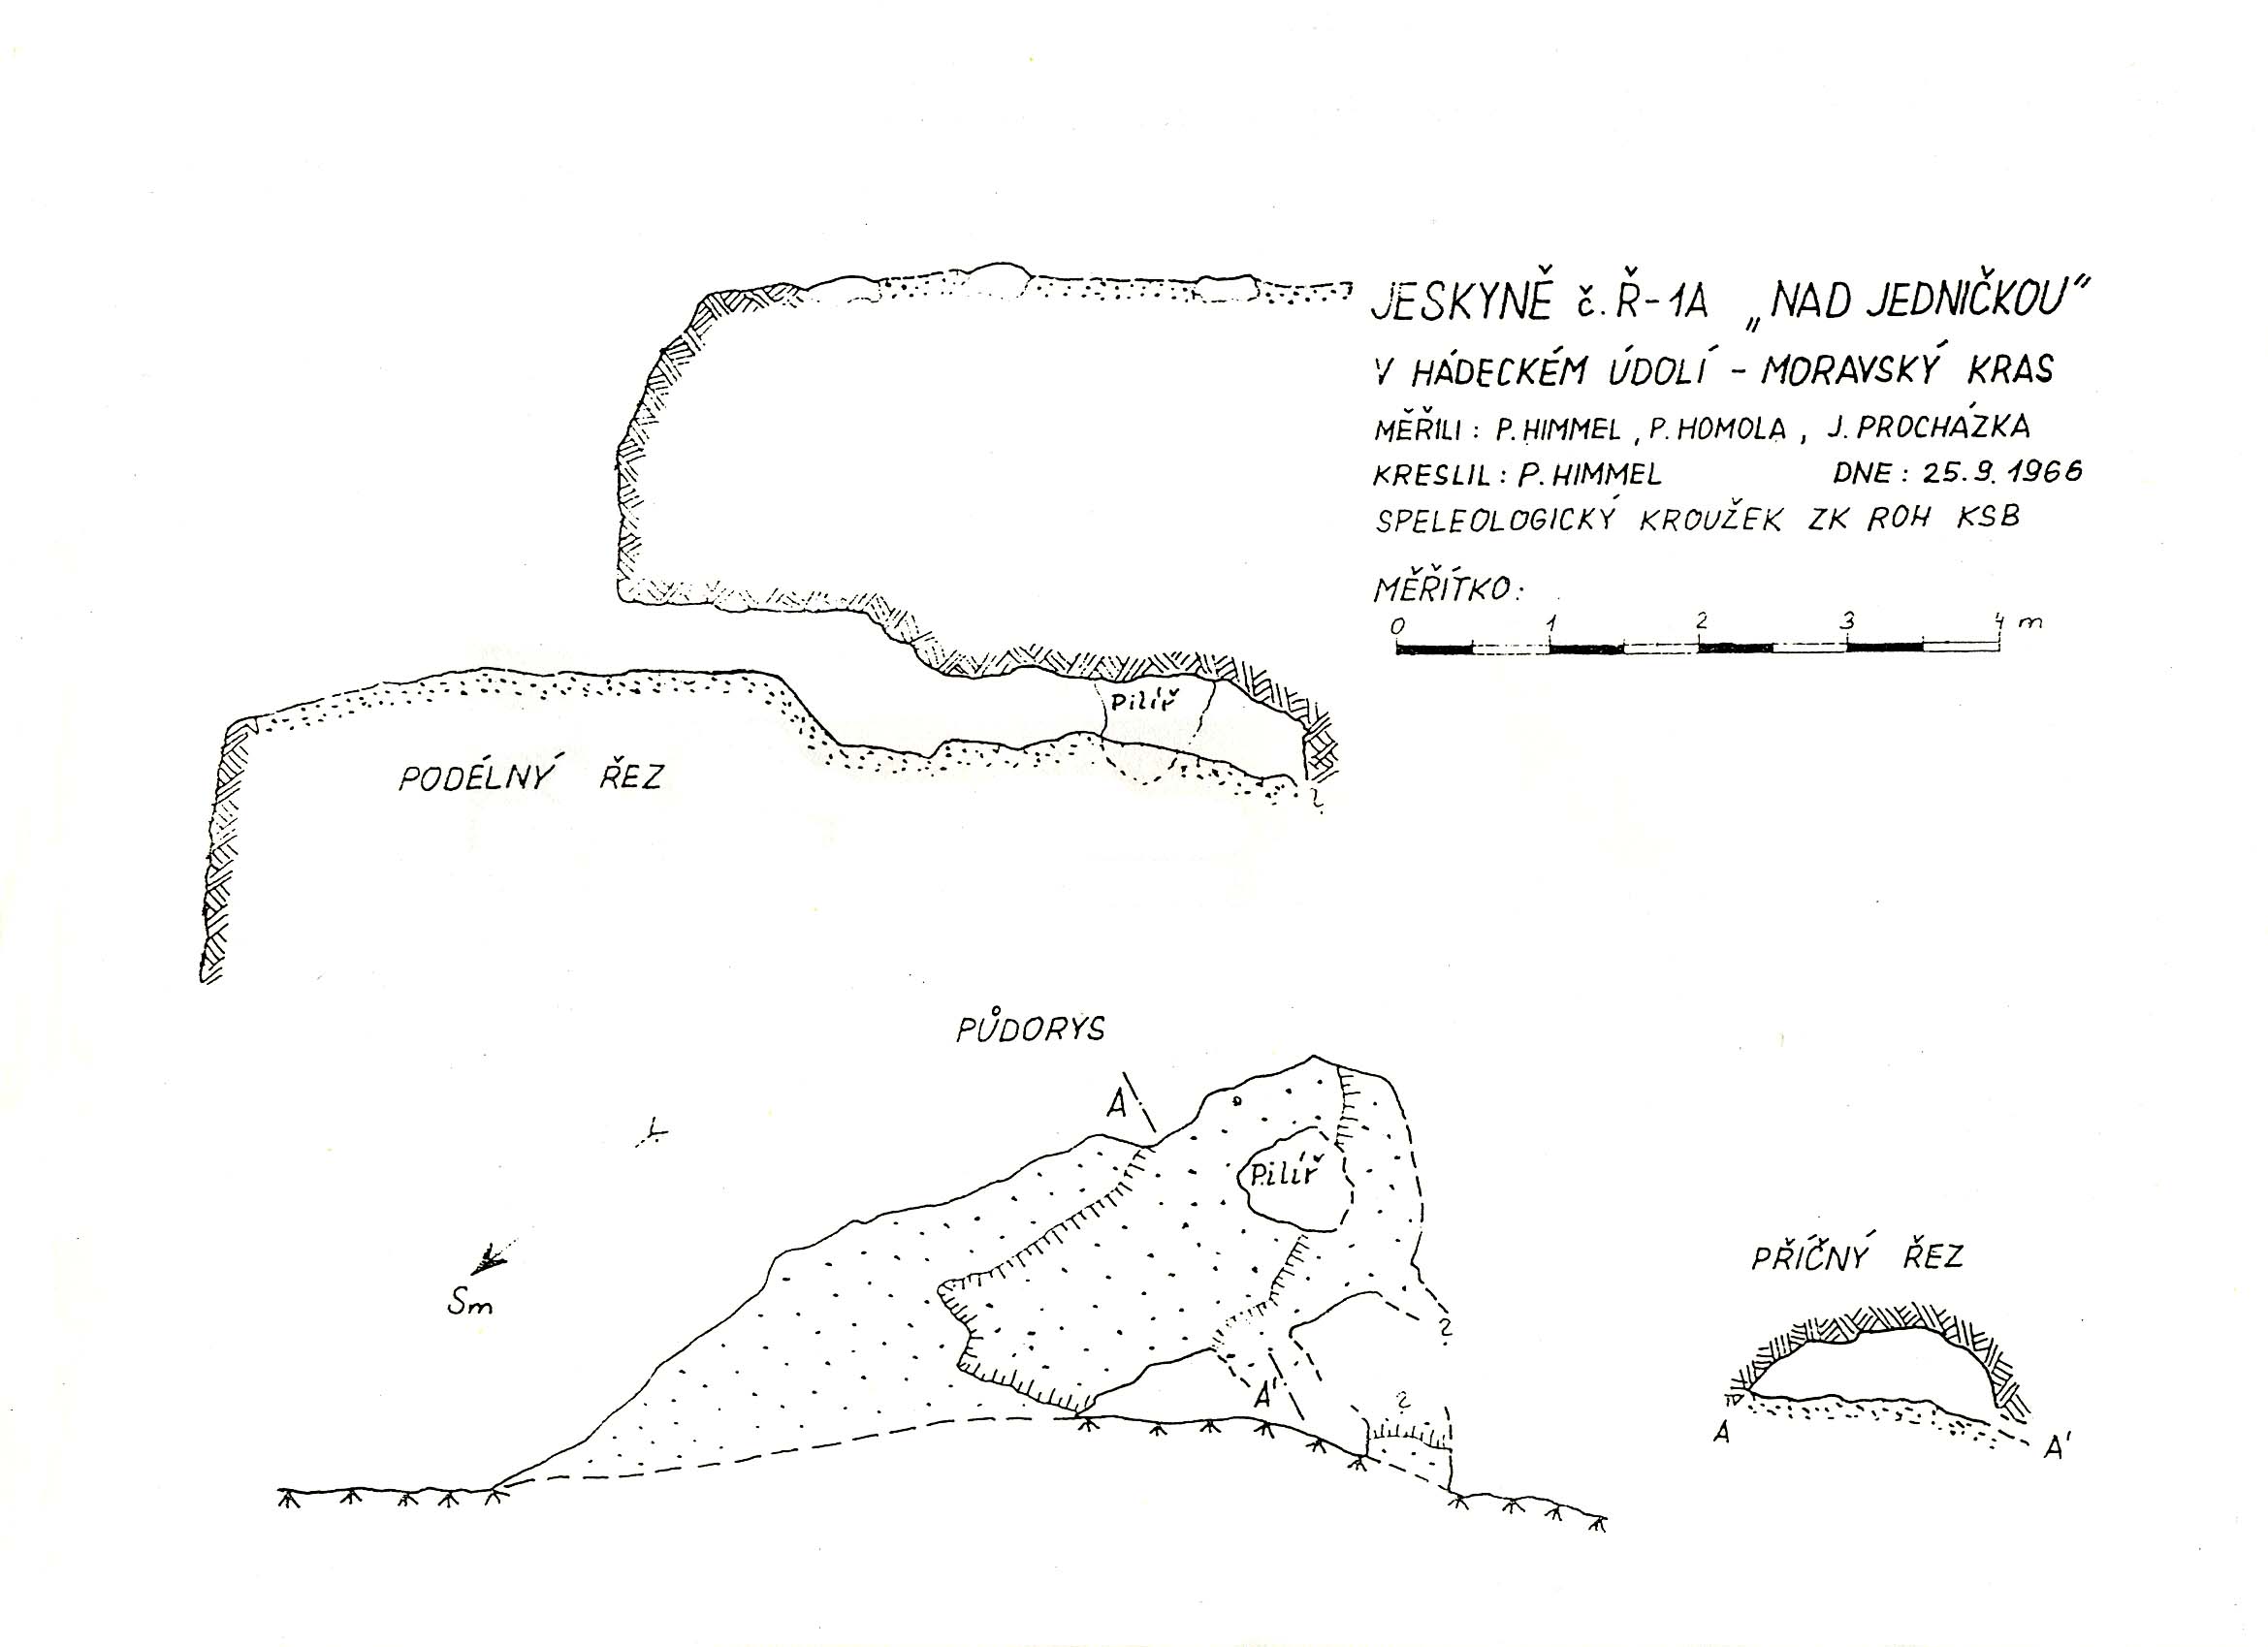 JESKYNĚ č. Ř-1A „NAD JEDNIČKOU"
V HÁDECKÉM ÚDOLÍ - MORAVSKÝ KRAS
MĚŘILI: P. HIMMEL, P. HOMOLA, J. PROCHÁZKA
KRESLIL: P. HIMMEL DNE: 25.9.1966
SPELEOLOGICKÝ KROUŽEK ZK ROH KSB
MĚŘÍTKO:
0 1 2 3 4 m
Pilíř
PODÉLNÝ ŘEZ
?
PŮDORYS
A
Pilíř
Sm
?
A'
?
PŘÍČNÝ ŘEZ
A A'